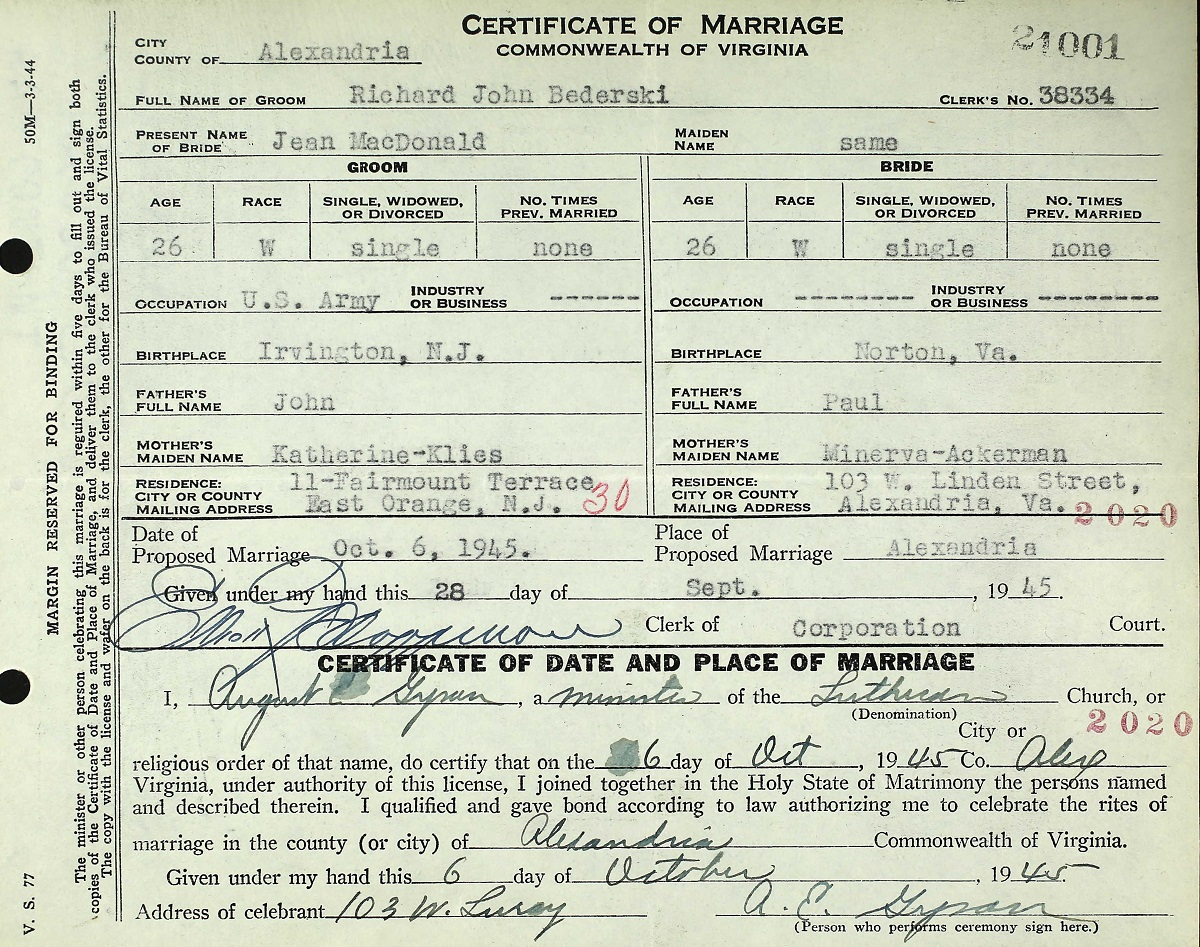 CERTIFICATE OF MARRIAGE
COMMONWEALTH OF VIRGINIA
21001
CITY
COUNTY OF Alexandria
FULL NAME OF GROOM Richard John Bederski CLERK'S NO. 38334
PRESENT NAME OF BRIDE Jean MacDonald MAIDEN NAME same
GROOM BRIDE
AGE RACE SINGLE, WIDOWED, OR DIVORCED NO. TIMES PREV. MARRIED AGE RACE SINGLE, WIDOWED, OR DIVORCED NO. TIMES PREV. MARRIED
26 W single none 26 W single none
OCCUPATION U.S. Army INDUSTRY OR BUSINESS ------ OCCUPATION -------- INDUSTRY OR BUSINESS --------
BIRTHPLACE Irvington, N.J. BIRTHPLACE Norton, Va.
FATHER'S FULL NAME John FATHER'S FULL NAME Paul
MOTHER'S MAIDEN NAME Katherine-Klies MOTHER'S MAIDEN NAME Minerva-Ackerman
RESIDENCE: 11-Fairmount Terrace RESIDENCE: 103 W. Linden Street,
CITY OR COUNTY MAILING ADDRESS East Orange, N.J. 30 CITY OR COUNTY MAILING ADDRESS Alexandria, Va. 2020
Date of Proposed Marriage Oct. 6, 1945. Place of Proposed Marriage Alexandria
Given under my hand this 28 day of Sept., 1945.
Clerk of Corporation Court.
CERTIFICATE OF DATE AND PLACE OF MARRIAGE
I, August E, a minister of the Lutheran Church, or
(Denomination)
City or 2020
religious order of that name, do certify that on the 6 day of Oct, 1945 Co. Alex
Virginia, under authority of this license, I joined together in the Holy State of Matrimony the persons named
and described therein. I qualified and gave bond according to law authorizing me to celebrate the rites of
marriage in the county (or city) of Alexandria Commonwealth of Virginia.
Given under my hand this 6 day of October, 1945.
Address of celebrant 103 W. Luray A. E.
(Person who performs ceremony sign here.)
50M—3-3-44
MARGIN RESERVED FOR BINDING
V. S. 77
The minister or other person celebrating this marriage is required within five days to fill out and sign both
copies of the Certificate of Date and Place of Marriage, and deliver them to the clerk who issued the license.
The copy with the license and wafer on the back is for the clerk, the other for the Bureau of Vital Statistics.